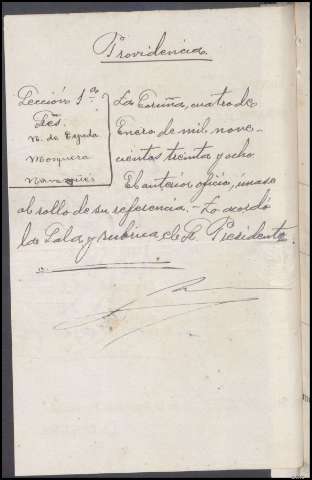 Providencia
Sección 1ª.
Sres.
M. de Tejada
Mosquera
La Coruña, cuatro de
Enero de mil nove-
cientos treinta y ocho.
El anterior oficio, únase
al rollo de su referencia.- Lo acordó
la Sala y rubrica el Sr. Presidente.